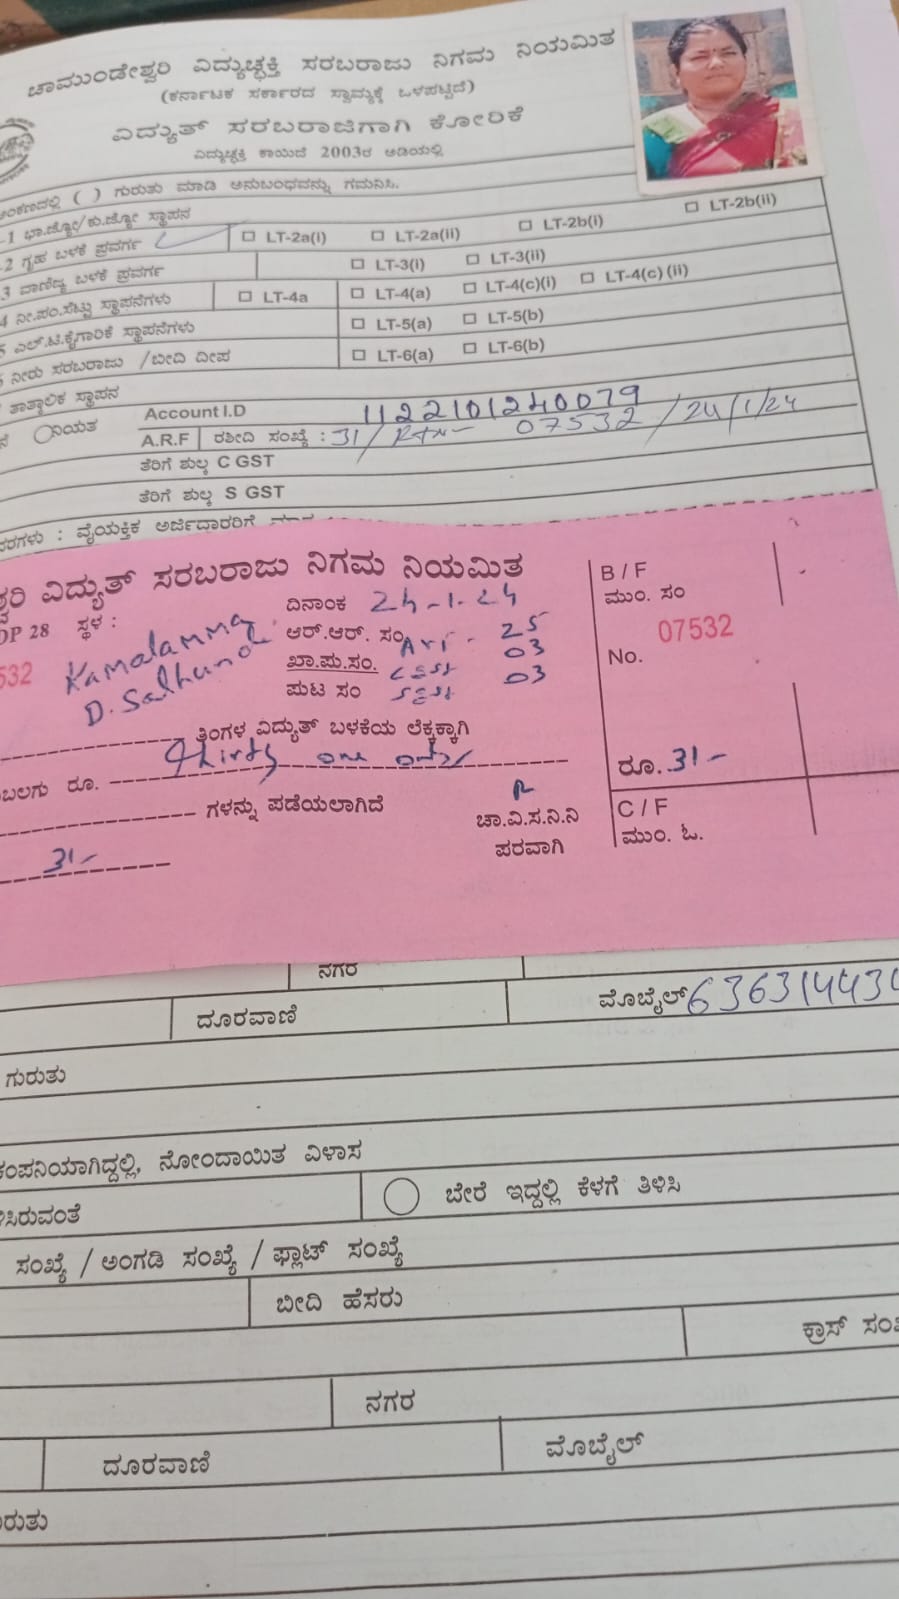 ಚಾಮುಂಡೇಶ್ವರಿ ವಿದ್ಯುಚ್ಛಕ್ತಿ ಸರಬರಾಜು ನಿಗಮ ನಿಯಮಿತ
(ಕರ್ನಾಟಕ ಸರ್ಕಾರದ ಸ್ವಾಮ್ಯಕ್ಕೆ ಒಳಪಟ್ಟಿದೆ)
ವಿದ್ಯುತ್ ಸರಬರಾಜಿಗಾಗಿ ಕೋರಿಕೆ
ವಿದ್ಯುಚ್ಛಕ್ತಿ ಕಾಯಿದೆ 2003ರ ಅಡಿಯಲ್ಲಿ
ಅಂಕಣದಲ್ಲಿ ( ) ಗುರುತು ಮಾಡಿ ಅನುಬಂಧವನ್ನು ಗಮನಿಸಿ.
-1 ಭಾ.ಜ್ಯೋ/ಕು.ಜ್ಯೋ ಸ್ಥಾಪನ
-2 ಗೃಹ ಬಳಕೆ ಪ್ರವರ್ಗ LT-2a(i) LT-2a(ii) LT-2b(i) LT-2b(ii)
3 ವಾಣಿಜ್ಯ ಬಳಕೆ ಪ್ರವರ್ಗ LT-3(i) LT-3(ii)
4 ನೀ.ಪಂ.ಸೆಟ್ಟು ಸ್ಥಾಪನೆಗಳು LT-4a LT-4(a) LT-4(c)(i) LT-4(c) (ii)
ಎಲ್.ಟಿ.ಕೈಗಾರಿಕೆ ಸ್ಥಾಪನೆಗಳು LT-5(a) LT-5(b)
ನೀರು ಸರಬರಾಜು /ಬೀದಿ ದೀಪ LT-6(a) LT-6(b)
ತಾತ್ಕಾಲಿಕ ಸ್ಥಾಪನ
ನಿಯತ Account I.D 1122101240079
A.R.F ರಶೀದಿ ಸಂಖ್ಯೆ : 31/ 07532 /24/1/24
ತೆರಿಗೆ ಶುಲ್ಕ C GST
ತೆರಿಗೆ ಶುಲ್ಕ S GST
ವೈಯಕ್ತಿಕ ಅರ್ಜಿದಾರರಿಗೆ
ವಿದ್ಯುತ್ ಸರಬರಾಜು ನಿಗಮ ನಿಯಮಿತ
DP 28 ಸ್ಥಳ :
ದಿನಾಂಕ 24-1-24
ಆರ್.ಆರ್. ಸಂ 25
ಖಾ.ಪು.ಸಂ. 03
ಪುಟ ಸಂ 03
532 Kamalamma
D. Salhundi
ತಿಂಗಳ ವಿದ್ಯುತ್ ಬಳಕೆಯ ಲೆಕ್ಕಕ್ಕಾಗಿ
ರೂ. thirty one only
ಗಳನ್ನು ಪಡೆಯಲಾಗಿದೆ
31-
ಚಾ.ವಿ.ಸ.ನಿ.ನಿ
ಪರವಾಗಿ
B / F
ಮುಂ. ಸಂ
No. 07532
ರೂ. 31-
C / F
ಮುಂ. ಓ.
ನಗರ
ದೂರವಾಣಿ ಮೊಬೈಲ್
ಗುರುತು
ಕಂಪನಿಯಾಗಿದ್ದಲ್ಲಿ, ನೋಂದಾಯಿತ ವಿಳಾಸ
ಬೇರೆ ಇದ್ದಲ್ಲಿ ಕೆಳಗೆ ತಿಳಿಸಿ
ಸಂಖ್ಯೆ / ಅಂಗಡಿ ಸಂಖ್ಯೆ / ಫ್ಲಾಟ್ ಸಂಖ್ಯೆ
ಬೀದಿ ಹೆಸರು
ಕ್ರಾಸ್
ನಗರ
ದೂರವಾಣಿ ಮೊಬೈಲ್